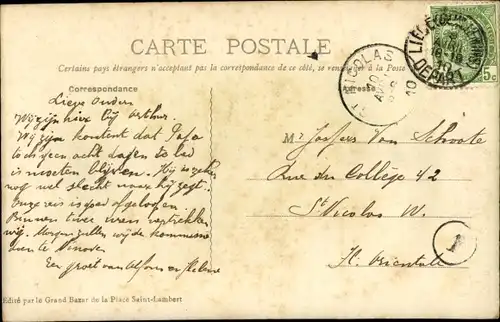 CARTE POSTALE
Certains pays étrangers n'acceptant pas la correspondance de ce côté, se renseigner à la Poste
Correspondance
Adresse
Lieve Ouders
Wij zijn hier bij Arthur.
Wij zijn kontent dat Papa
toch geen acht dagen te bed
is moeten blijven. Hij
nog wel slecht naar hij zegt.
Onze reis is goed afgeloopen.
Binnen twee uren vertrekken
wij. Morgen zullen wij de kommissie
doen te Ninove.
Een groet van Alfons en Helene
Mr Joseph Van Schoote
Rue du Collège 42
St Nicolas W.
Fl. Orientale
1
ST NICOLAS
10
LIEGE
DEPART
10
5c
Edité par le Grand Bazar de la Place Saint-Lambert